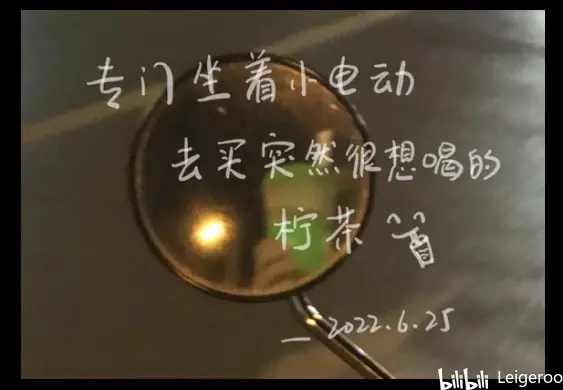 专门坐着小电动
去买突然很想喝的
柠茶
一 2022.6.25
bilibili Leigeroo